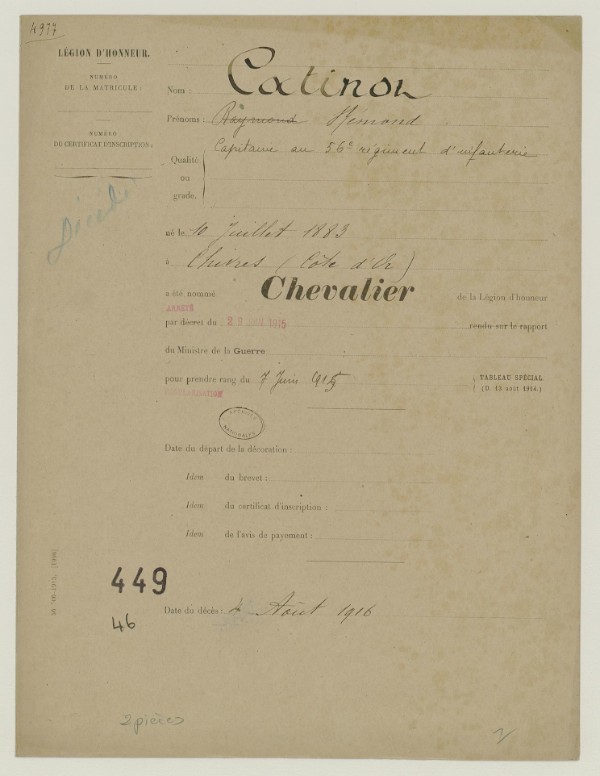 4977
LÉGION D'HONNEUR.
NUMÉRO
DE LA MATRICULE:
NUMÉRO
DU CERTIFICAT D'INSCRIPTION:
Décédé
Nom: Catinol
Prénoms: Raymond Hémond
Capitaine au 56e régiment d'infanterie
Qualité
ou
grade.
né le 10 Juillet 1883
à (Côte d'Or)
a été nommé Chevalier de la Légion d'honneur
ARRÊTÉ
par décret du 1915 rendu sur le rapport
du Ministre de la Guerre
pour prendre rang du 7 Juin 1915
TABLEAU SPÉCIAL
(D. 13 août 1914.)
ARCHIVES
NATIONALES
Date du départ de la décoration:
Idem du brevet:
Idem du certificat d'inscription:
Idem de l'avis de payement:
449
46
Date du décès: 4 Août 1916
2 pièces